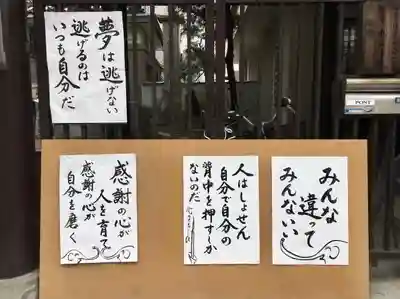 夢は逃げない
逃げるのは
いつも自分だ
POST
みんな
違って
みんないい
人はしょせん
自分で自分の
背中を押すしか
ないのだ
感謝の心が
人を育て
感謝の心が
自分を磨く